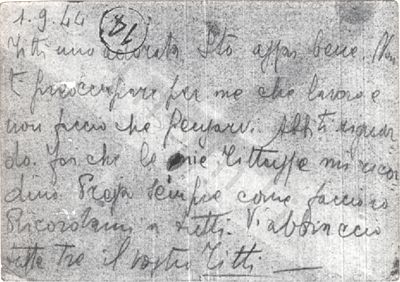 1.9.44 14
Titti mio adorata Sto assai bene. Non
ti preoccupare per me che lavoro e
non faccio che pensarvi. Abbiti riguar
do. fa che le mie Tittuffe mi ricor
dino Prega sempre come faccio io
Ricordami a tutti. V'abbraccio
tutte tre il vostro Titti